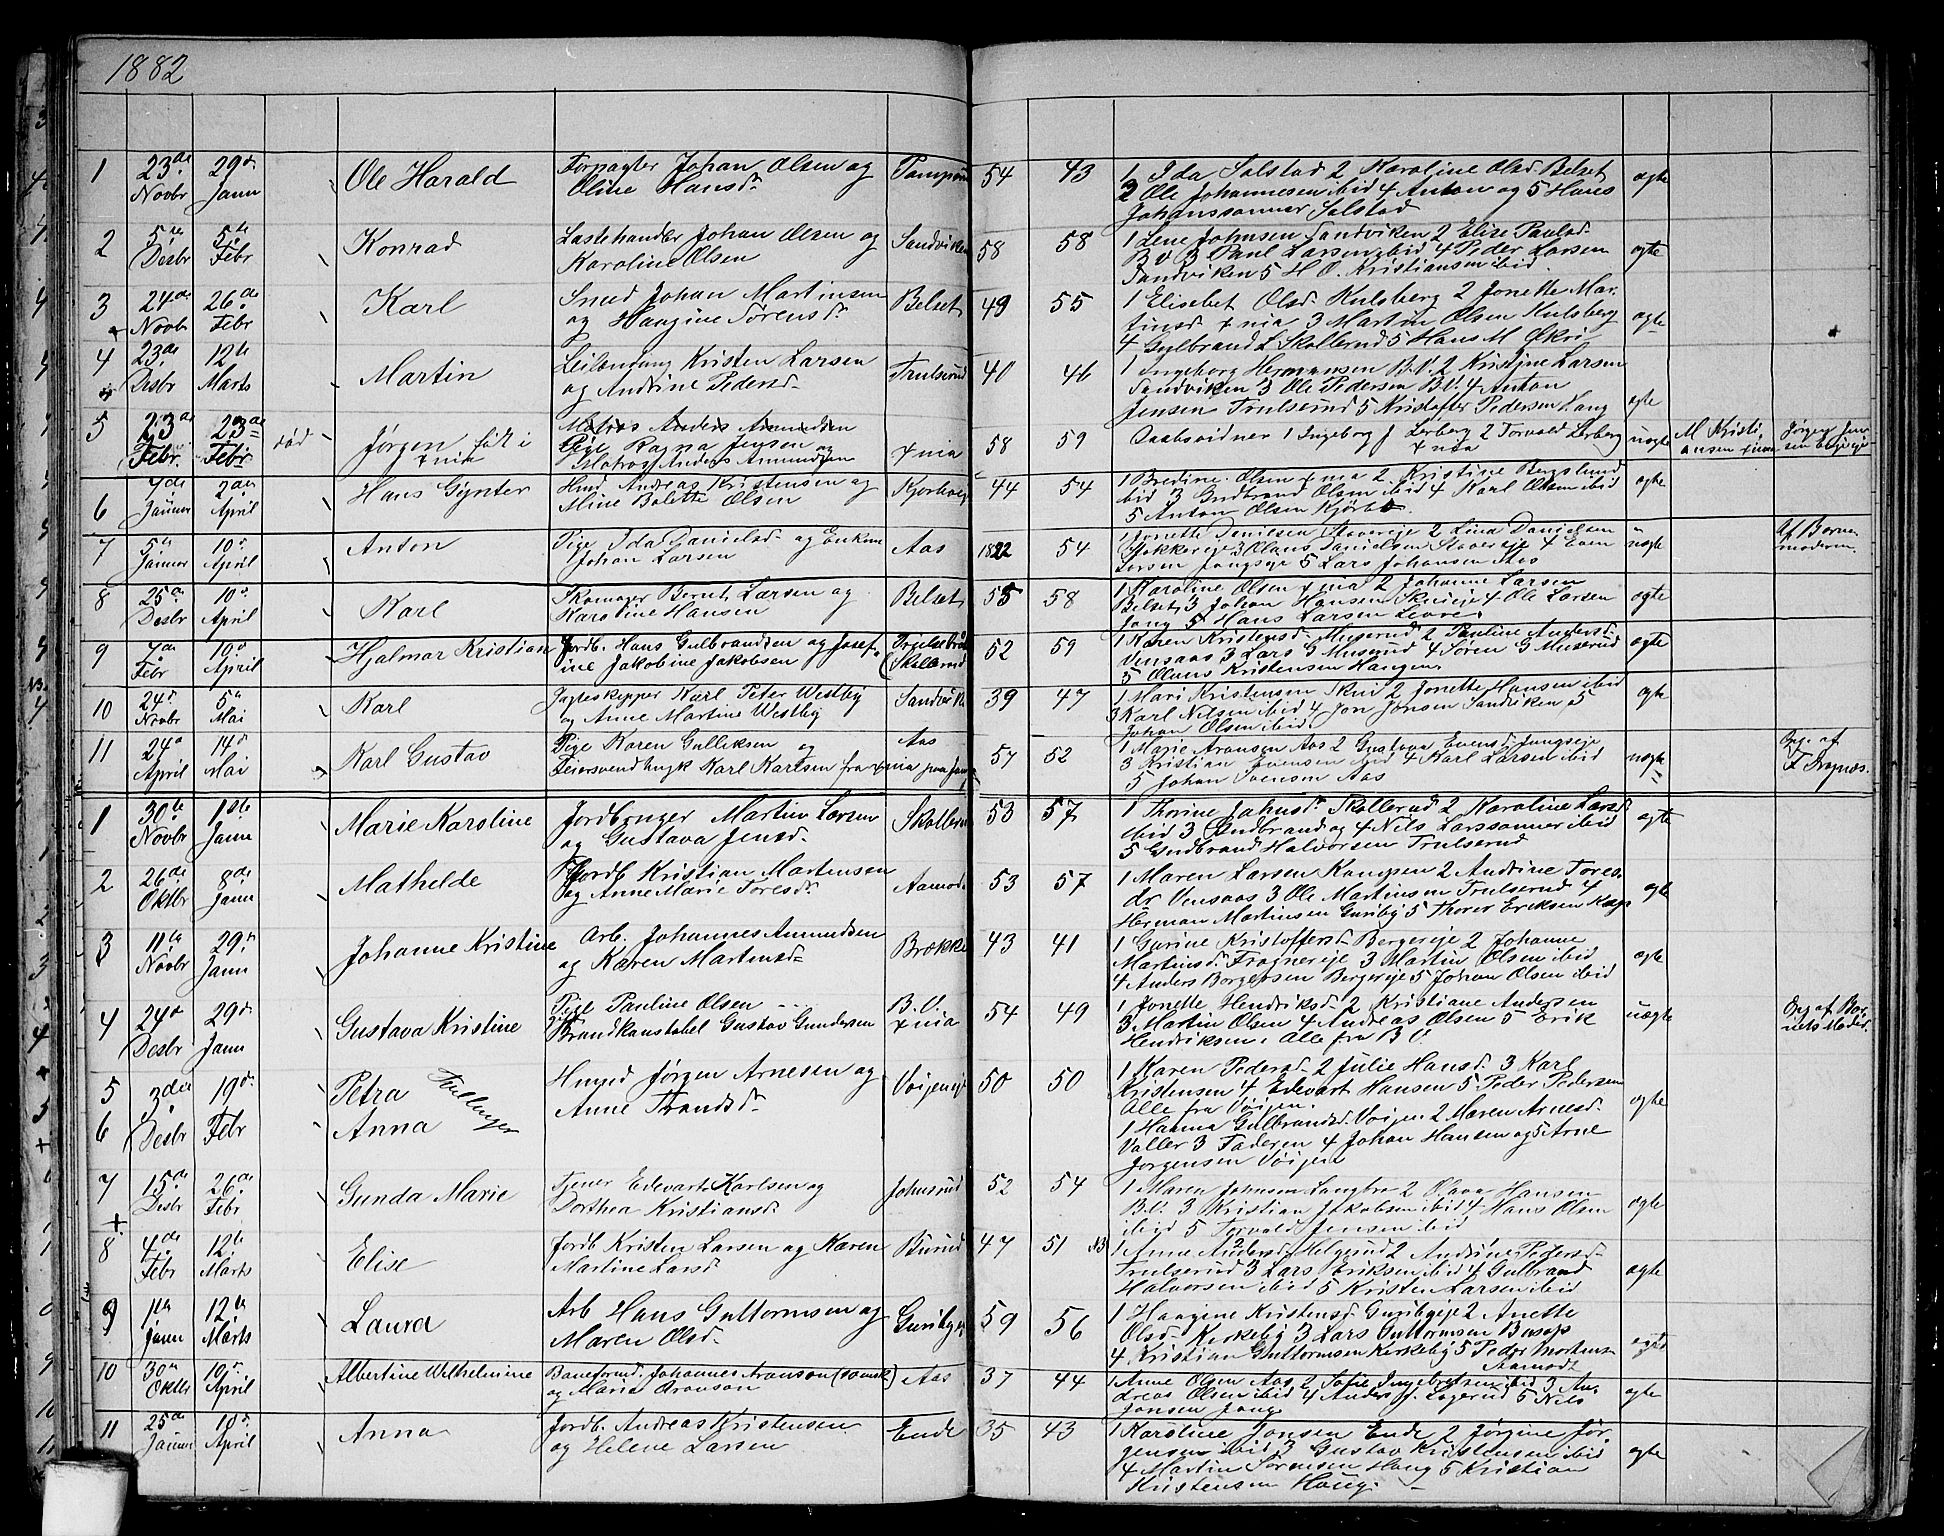 1882
1 23de 29de Ole Harald Forpagter Johan Olsen og 54 43 1 Ida Solstad 2 Karoline Olsd Belset ægte
Novbr Janu Oline Hansdr 2 Ole Johannesen ibid 4 Anton og 5 Hans
Johanssønner Solstad
2 5te 5te Konrad Lastehandler Johan Olsen og Sandviken 58 58 1 Lene Johnsen Sandviken 2 Elise Paulsd. ægte
Desbr Febr Karoline Olsen B V 3 Paul Larsen ibid 4 Peder Larsen
Sandviken 5 H. O. Kristiansen ibid
3 24de 26de Karl Smed Johan Martinsen Belset 49 55 1 Elisebet Olsd. Kulsberg 2 Jonette Mar- ægte
Novbr Febr og Hangine Sørensdr tinsd. xnia 3 Martin Olsen Kulsberg
4 Gulbrand L Skollerud 5 Hans M Økri
4 23de 12te Martin Leilænding Kristen Larsen Trulserud 40 46 1 Ingeborg Hermansen B.V. 2 Kristine Larsen ægte
Desbr Marts og Andrine Pedersd. Sandviken 3 Ole Pedersen B.V. 4 Anton
Jensen Trulserud 5 Kristoffer Pedersen Haug
5 23de 23de død Jørgen født i Matros Anders Amundsen 58 59 Daabsvidner 1 Ingeborg J Lerberg 2 Torvald Lerberg uægte M Kristi- Jørgen Jen-
Febr. Febr xnia Pige Ragna Jensen og xnia xnia ansen xnia sen
Matros Anders Amundsen
6 7de 2den Hans Gynter Hmd Andreas Kristensen og 44 54 1 Bredine Olsen xnia 2 Kristine Berglund ægte
Januar April Mine Bolette Olsen ibid 3 Gudbrand Olsen ibid 4 Karl Olsen ibid
5 Anton Olsen Kjørbo
7 5te 10de Anton Pige Ida Danielsd. og Enkem Aas 1822 54 1 Jonette Danielsen 2 Lina Danielsen uægte Af Barne-
Januar April Johan Larsen 3 Olaus Danielsen 4 Even moderen.
5 Lars Johansen Aas
8 25de 10de Karl Skomager Bernt Larsen og Belset 55 58 1 Karoline Olsen xnia 2 Johanne Larsen ægte
Desbr April Karoline Hansen Belset 3 Johan Hansen 4 Ole Larsen
Jong 5 Hans Larsen Levre
9 7de 10de Hjalmar Kristian Jordb. Hans Gulbrandsen og Josef- 52 59 1 Karen Kristensd. Muserud 2 Pauline Andersd. ægte
Febr April ine Jakobine Jakobsen Skollerud Vensaas 3 Lars G Muserud 4 Søren G Muserud
5 Olaus Kristensen Haugen
10 24de 5te Karl Jagteskipper Karl Peter Westby Sandvika 39 47 1 Mari Kristensen Skui 2 Jonette Hansen ibid ægte
Novbr Mai og Anne Martine Westby 3 Karl Nilsen ibid 4 Jon Jonsen Sandviken 5
Johan Olsen ibid
11 24de 14de Karl Gustav Pige Karen Gulliksen og Aas 57 52 1 Marie Aronsen Aas 2 Gustava Evensd. uægte Opg. af
April Mai Feiersvend Karl Karlsen fra xnia 3 Kristian Evensen ibid 4 Karl Larsen ibid
5 Johan Svensen Aas
1 30te 1ste Marie Karoline Jordbruger Martin Larsen Skollerud 53 57 1 Thorine Jahnsdr Skollerud 2 Karoline Larsd ægte
Novbr Janu og Gustava Jensd. ibid 3 Gudbrand og 4 Nils Larssønner ibid
5 Gudbrand Halvorsen Trulserud
2 26de 8de Mathelde Jordb Kristian Martensen Aamodt 53 57 1 Maren Larsen Kampen 2 Andrine Tores- ægte
Oktbr Janu og Anne Marie Toresdr dr Vensaas 3 Ole Martinsen Trulserud 4
Herman Martinsen Guriby 5 Thorer Eriksen
3 11te 29de Johanne Kristine Arb. Johannes Amundsen Brække 43 41 1 Gurine Kristoffersd. Bergereje 2 Johanne ægte
Novbr Janu og Karen Martinsd. Martinsd. Frognereje 3 Martin Olsen ibid
4 Anders Borgersen Bergereje 5 Johan Olsen ibid
4 24de 29de Gustava Kristine Pige Pauline Olsen B.V. 54 49 1 Jonette Hendriksd. 2 Kristiane Andersen uægte Opg af Bar-
Desbr Janu Brandkonstabel Gustav Gundersen xnia 3 Martin Olsen 4 Andreas Olsen 5 Erik nets Moder
Hendriksen. Alle fra B V.
5 3die 19de Petra Tvillinger Hmd Jørgen Arnesen og Vøjeneje 50 50 1 Karen Pedersd. 2 Julie Hansd. 3 Karl ægte
6 Desbr Febr Anna Anne Trondsdr. Kristensen 4 Edevart Hansen 5 Peder Pedersen
Alle fra Vøjen.
1 Hanna Gulbrandsd. Vøjen 2 Maren Arnesd.
Valler 3 Faderen 4 Johan Hansen og 5 Arne
Jørgensen Vøjen
7 15de 26de Gunda Marie Tjener Edevart Karlsen og Johnsrud 52 54 1 Maren Johnsen Langbro 2 Olava Hansen ægte
Desbr Febr Dorthea Kristiansd. B.V. 3 Kristian Jakobsen ibid 4 Hans Olsen
ibid 5 Torvald Jensen ibid
8 4de 12te Elise Jordb Kristen Larsen og Karen Burud 47 51 1 Anne Andersd Helgerud 2 Andrine Pedersd. ægte
Febr Marts Martine Larsd. Trulserud 3 Lars Eriksen ibid 4 Gulbrand
Halvorsen ibid 5 Kristen Larsen ibid
9 11te 12te Laura Arb Hans Guttormsen og Guribyeje 59 56 1 Haagine Kristensd. Guribyeje 2 Anette ægte
Janu Marts Maren Olsd. Olsd. Kirkeby 3 Lars Guttormsen Busop
4 Kristian Guttormsen Kirkeby 5 Peder Mortensen
Aamodt
10 30te 10de Albertine Wilhelmine Baneformd. Johannes Aronson (svensk) Aas 37 44 1 Anne Olsen Aas 2 Sofie Ingebretsen ibid 3 An- ægte
Oktbr April og Maria Aronson dreas Olsen ibid 4 Anders J. Løgerud 5 Nils
Jonsen Jong
11 25de 10de Anna Jordb. Andreas Kristensen Ende 35 43 1 Karoline Jonsen Ende 2 Jørgine Jør- ægte
Januar April og Helene Larsen gensen ibid 3 Gustav Kristensen ibid
4 Martin Sørensen Haug 5 Kristian
Kristensen Haug.